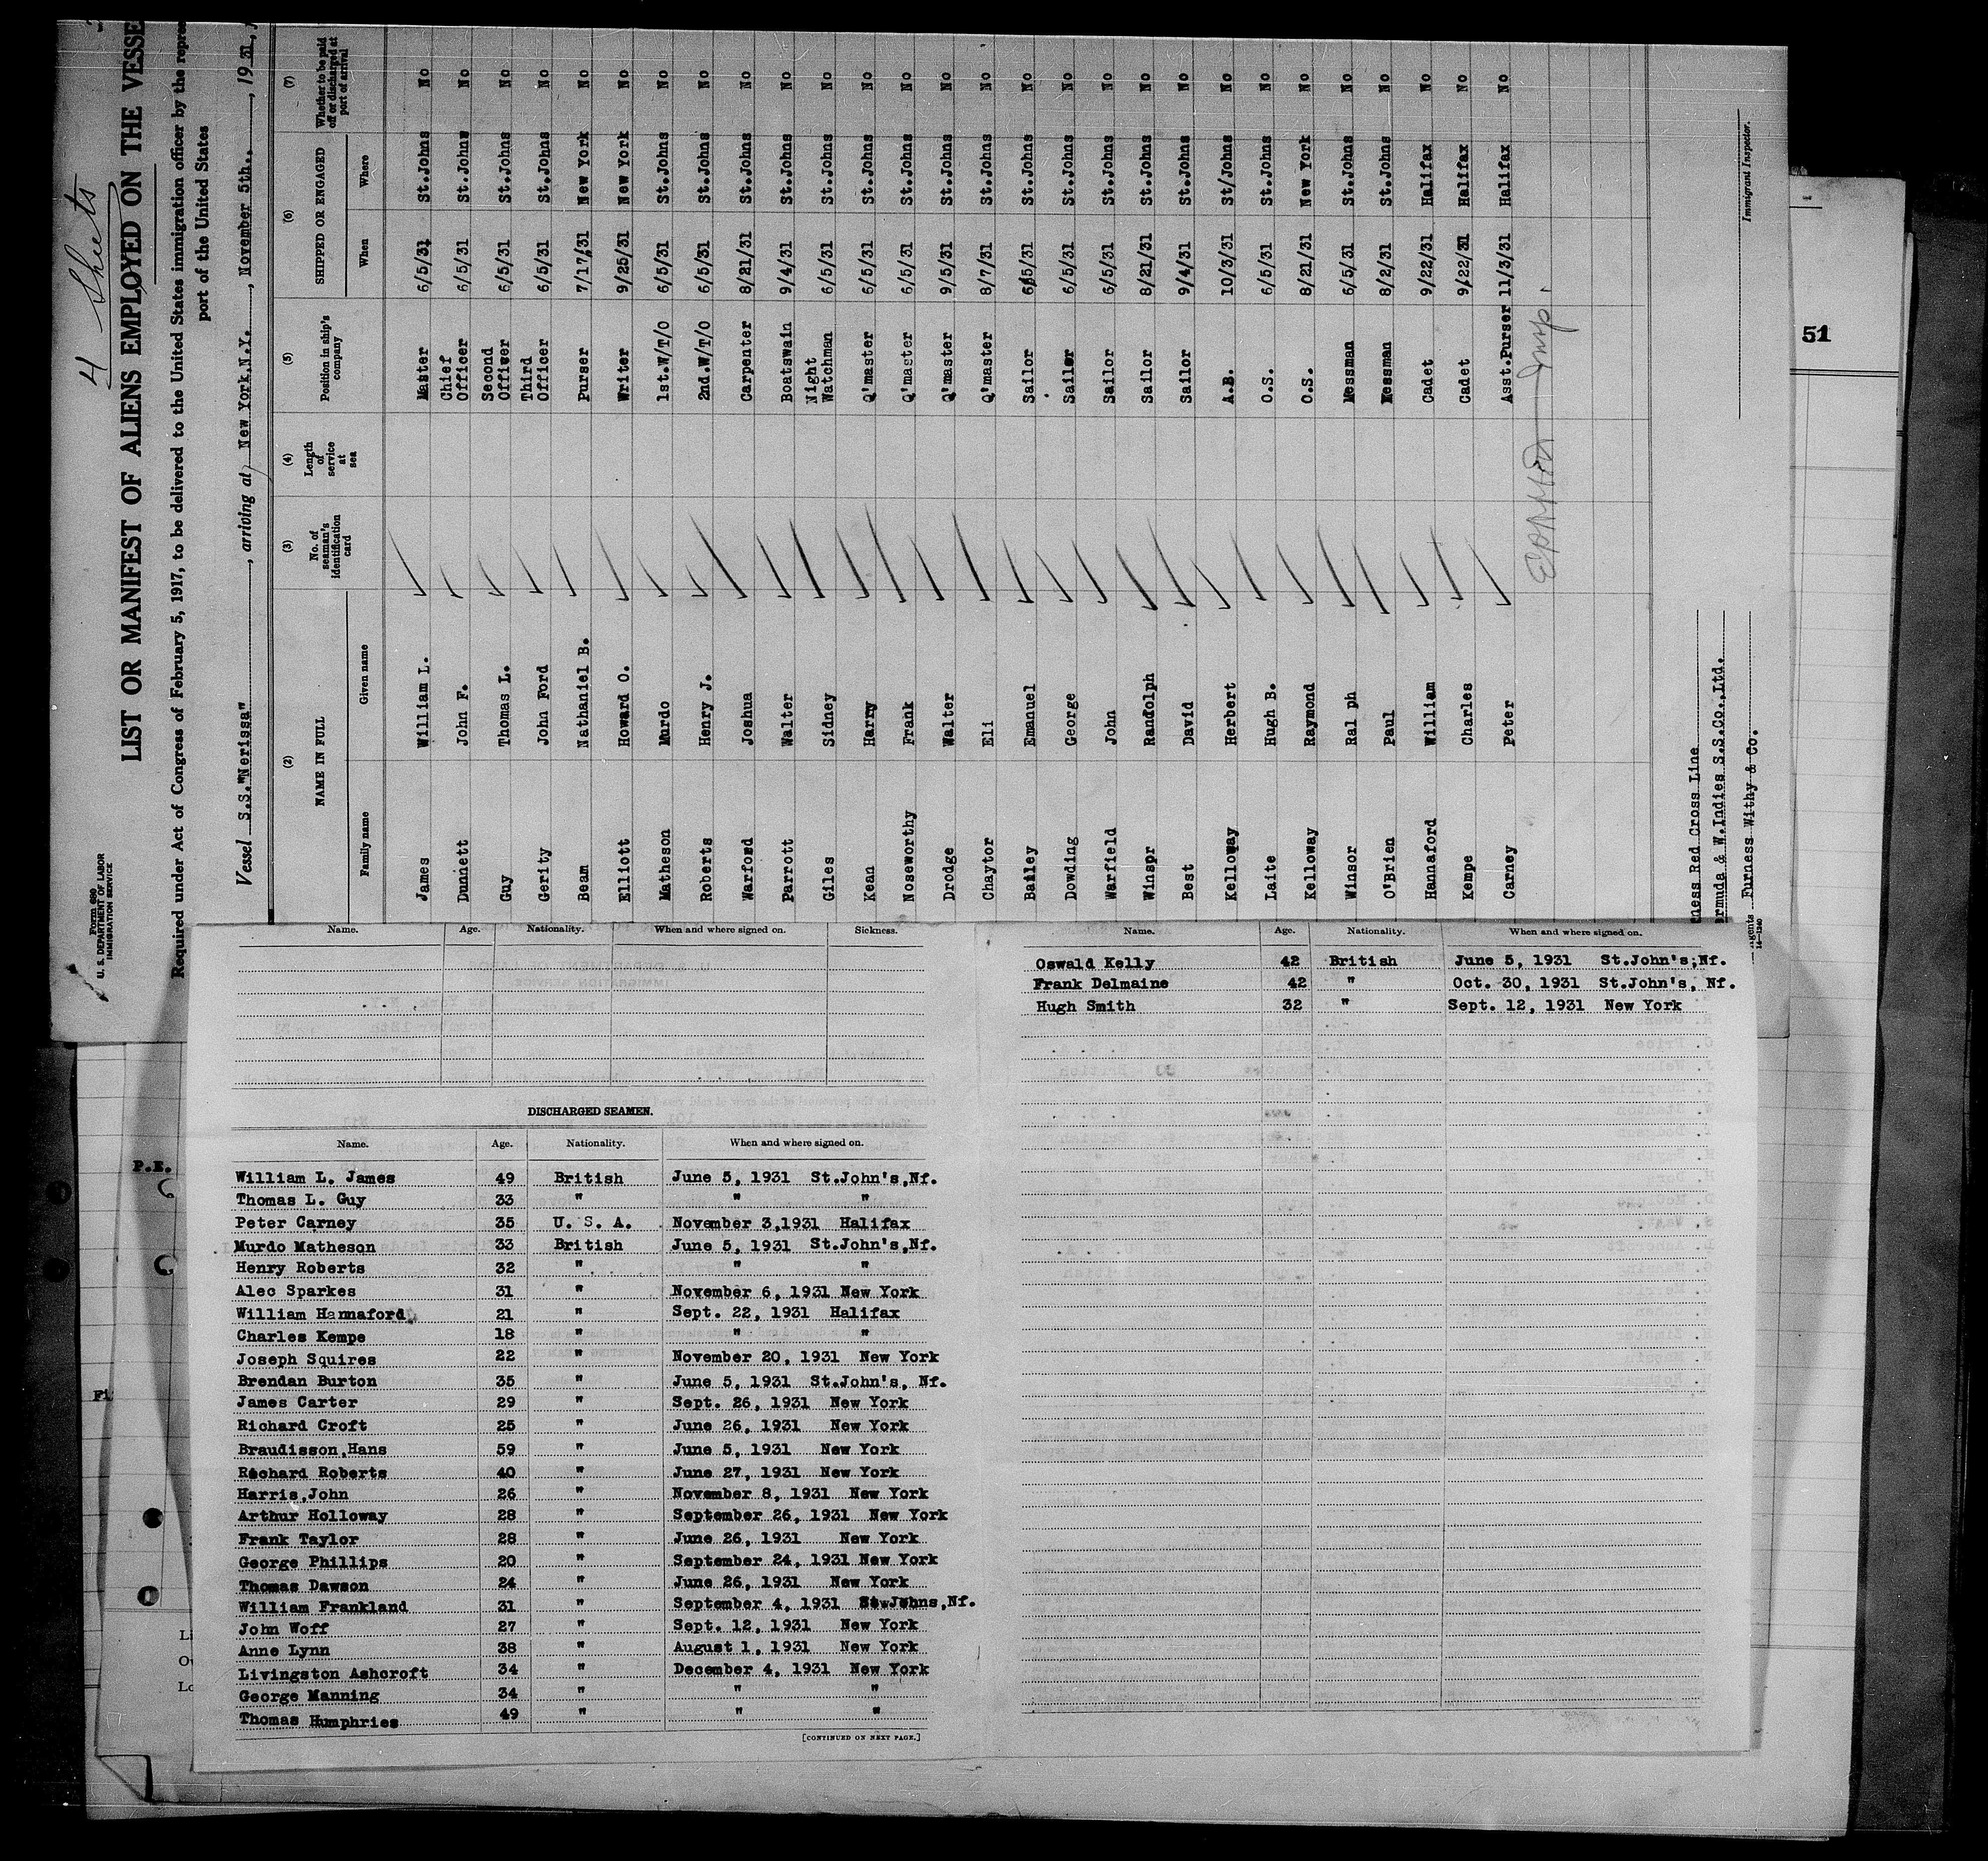 4 Sheets
Form 689
U. S. DEPARTMENT OF LABOR
IMMIGRATION SERVICE
LIST OR MANIFEST OF ALIENS EMPLOYED ON THE VESSE
Required under Act of Congress of February 5, 1917, to be delivered to the United States immigration officer by the repre
port of the United States
Vessel S.S."Nerissa", arriving at New York,N.Y., November 5th., 1931,
(2) (3) (4) (5) (6) (7)
NAME IN FULL No. of seaman's identification card Length of service at sea Position in ship's company SHIPPED OR ENGAGED Whether to be paid off or discharged at port of arrival
Family name Given name When Where
James William L. Master 6/5/31 St.Johns No
Dunnett John F. Chief Officer 6/5/31 St.Johns No
Guy Thomas L. Second Officer 6/5/31 St.Johns No
Gerity John Ford Third Officer 6/5/31 St.Johns No
Beam Nathaniel B. Purser 7/17/31 New York No
Elliott Howard O. Writer 9/25/31 New York No
Matheson Murdo 1st.W/T/O 6/5/31 St.Johns No
Roberts Henry J. 2nd.W/T/O 6/5/31 St.Johns No
Warford Joshua Carpenter 8/21/31 St.Johns No
Parrott Walter Boatswain 9/4/31 St.Johns No
Giles Sidney Night Watchman 6/5/31 St.Johns No
Kean Harry Q'master 6/5/31 St.Johns No
Noseworthy Frank Q'master 6/5/31 St.Johns No
Drodge Walter Q'master 9/5/31 St.Johns No
Chaytor Eli Q'master 8/7/31 St.Johns No
Bailey Emanuel Sailor 6/5/31 St.Johns No
Dowding George Sailor 6/5/31 St.Johns No
Warfield John Sailor 6/5/31 St.Johns No
Winspr Randolph Sailor 8/21/31 St.Johns No
Best David Sailor 9/4/31 St.Johns No
Kelloway Herbert A.B. 10/3/31 St/Johns No
Laite Hugh B. O.S. 6/5/31 St.Johns No
Kelloway Raymond O.S. 8/21/31 New York No
Winsor Ral ph Messman 6/5/31 St.Johns No
O'Brien Paul Messman 8/2/31 St.Johns No
Hannaford William Cadet 9/22/31 Halifax No
Kempe Charles Cadet 9/22/31 Halifax No
Carney Peter Asst.Purser 11/3/31 Halifax No
Insp.
ness Red Cross Line
rmuda & W.Indies S.S.Co.,Ltd.
Agents Furness Withy & Co.
14—1240
Immigrant Inspector.
51
P.E.
Fi
Li
Ow
Lo
Name. Age. Nationality. When and where signed on. Sickness.
DISCHARGED SEAMEN.
Name. Age. Nationality. When and where signed on.
William L. James 49 British June 5, 1931 St.John's,Nf.
Thomas L. Guy 33 " " "
Peter Carney 35 U. S. A. November 3,1931 Halifax
Murdo Matheson 33 British June 5, 1931 St.John's,Nf.
Henry Roberts 32 " " "
Alec Sparkes 31 " November 6, 1931 New York
William Hannaford 21 " Sept. 22, 1931 Halifax
Charles Kempe 18 " " "
Joseph Squires 22 " November 20, 1931 New York
Brendan Burton 35 " June 5, 1931 St.John's, Nf.
James Carter 29 " Sept. 26, 1931 New York
Richard Croft 25 " June 26, 1931 New York
Braudisson,Hans 59 " June 5, 1931 New York
Rochard Roberts 40 " June 27, 1931 New York
Harris,John 26 " November 8, 1931 New York
Arthur Holloway 28 " September 26, 1931 New York
Frank Taylor 28 " June 26, 1931 New York
George Phillips 20 " September 24, 1931 New York
Thomas Dawson 24 " June 26, 1931 New York
William Frankland 31 " September 4, 1931 St.Johns,Nf.
John Woff 27 " Sept. 12, 1931 New York
Anne Lynn 38 " August 1, 1931 New York
Livingston Ashcroft 34 " December 4, 1931 New York
George Manning 34 " " "
Thomas Humphries 49 " " "
[CONTINUED ON NEXT PAGE.]
Name. Age. Nationality. When and where signed on.
Oswald Kelly 42 British June 5, 1931 St.John's,Nf.
Frank Delmaine 42 " Oct. 30, 1931 St.John's, Nf.
Hugh Smith 32 " Sept. 12, 1931 New York